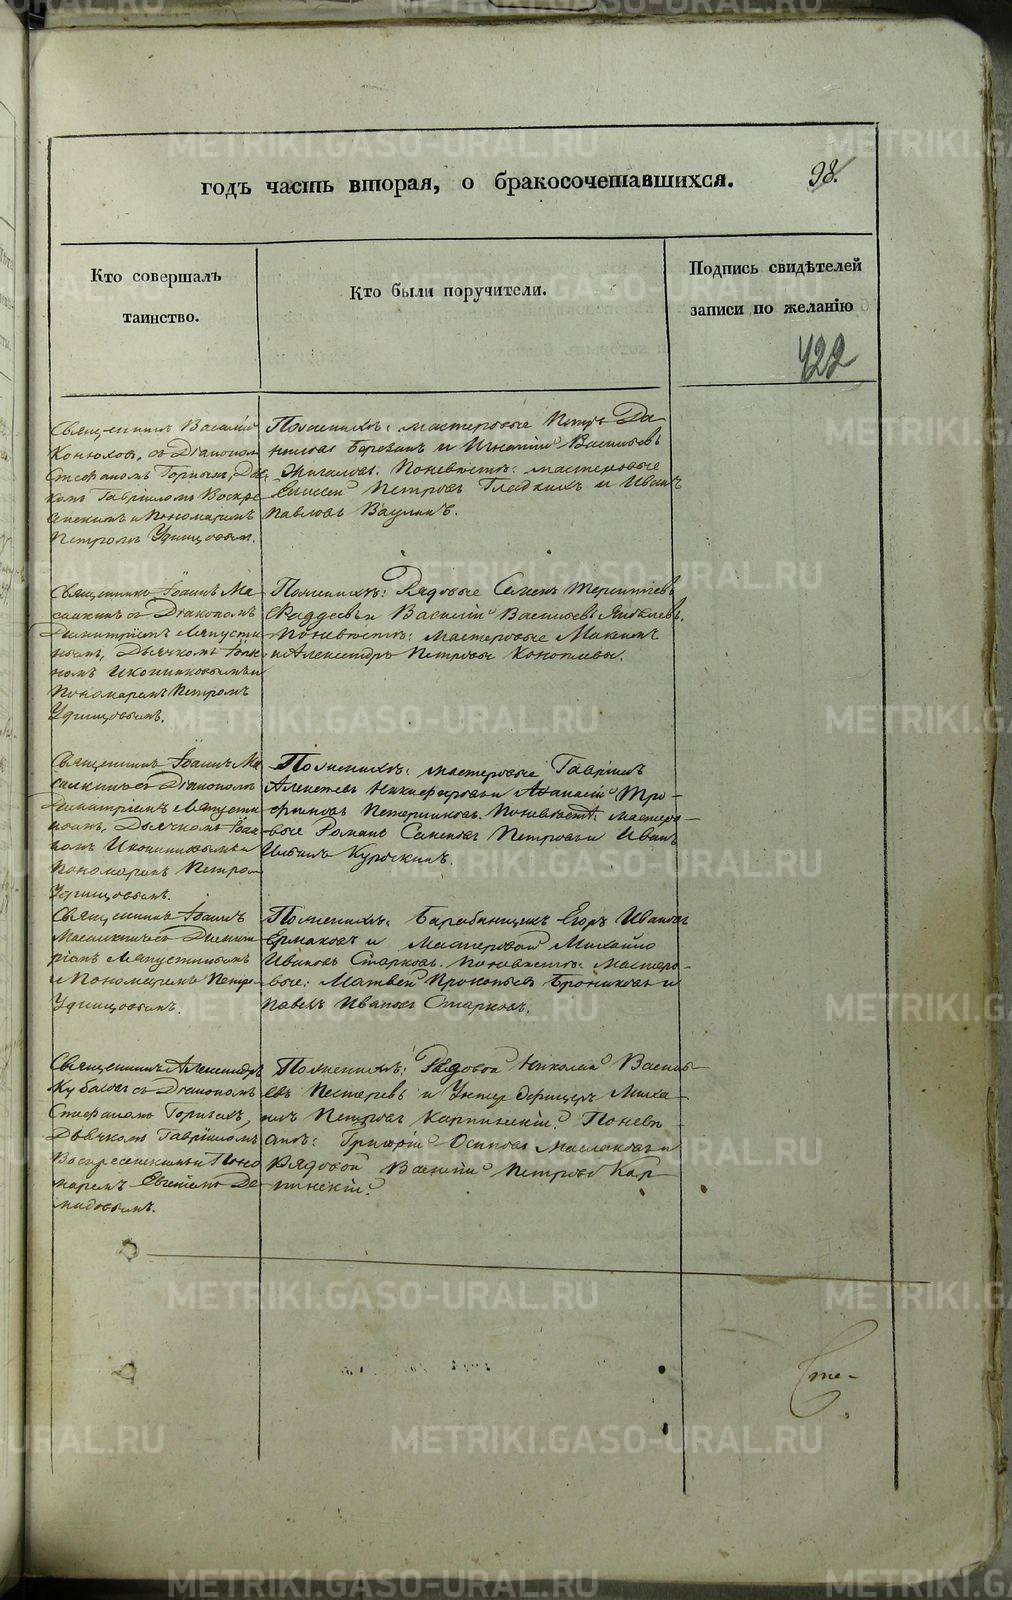 годъ часть вторая, о бракосочетавшихся.
98.
Кто совершалъ
таинство.
Кто были поручители.
Подпись свидѣтелей
записи по желанію
422
Священникъ Василій
Конюховъ, съ Діакономъ
Стефаномъ Горныхъ, Дья-
комъ Гавріиломъ Воскре
сенскимъ и Пономаремъ
Петромъ
По женихѣ: мастеровые Петръ Да
ниловъ и Игнатій Васильевъ
По невѣстѣ: мастеровые
Елисей Петровъ Гладкихъ и Иванъ
Павловъ Ваулинъ.
Священникъ Іоаннъ Ма
салкинъ съ Діакономъ
Димитріемъ Ляпусти
нымъ, Дьячкомъ Іоан
номъ Иконниковымъ и
Пономаремъ Петромъ
По женихѣ: Рядовые Семенъ Терентіевъ
Фаддеевъ и Василій Васильевъ
По невѣстѣ: мастеровые Максимъ
и Александръ Петровы
Священникъ Іоаннъ Ма
салкинъ съ Діакономъ
Димитріемъ Ляпусти
нымъ, Дьячкомъ Іоан
номъ Иконниковымъ и
Пономаремъ Петром
По женихѣ: мастеровые Гавріилъ
Алексѣевъ Никифоровъ и Афанасій Тро-
фимовъ По невѣстѣ: мастеро-
вые Романъ Семеновъ Петровъ и Иванъ
Ильинъ
Священникъ Іоаннъ
Масалкинъ съ Димит
ріемъ Ляпустинымъ
и Пономаремъ Петро
По женихѣ: Барабанщикъ Егоръ Ивановъ
Ермаковъ и Мастеровой Михайло
Ивановъ Старковъ. По невѣстѣ: Мастеро-
вые: Матвей Прокопьевъ Брониковъ и
Павелъ Ивановъ Старковъ.
Священникъ Александръ
съ Діакономъ
Стефаномъ Горныхъ,
Дьячкомъ Гавріиломъ
Воскресенскимъ и Поно
маремъ Евгеніемъ Де
мидовымъ.
По женихѣ: Рядовой Николай Василь-
евъ Пестеревъ и Унтер Офицеръ Миха-
илъ Петровъ Карпинскій. По невѣ-
стѣ: Григорій Осиповъ Маслаковъ и
Рядовой Василій Петровъ Кар-
пинскій.